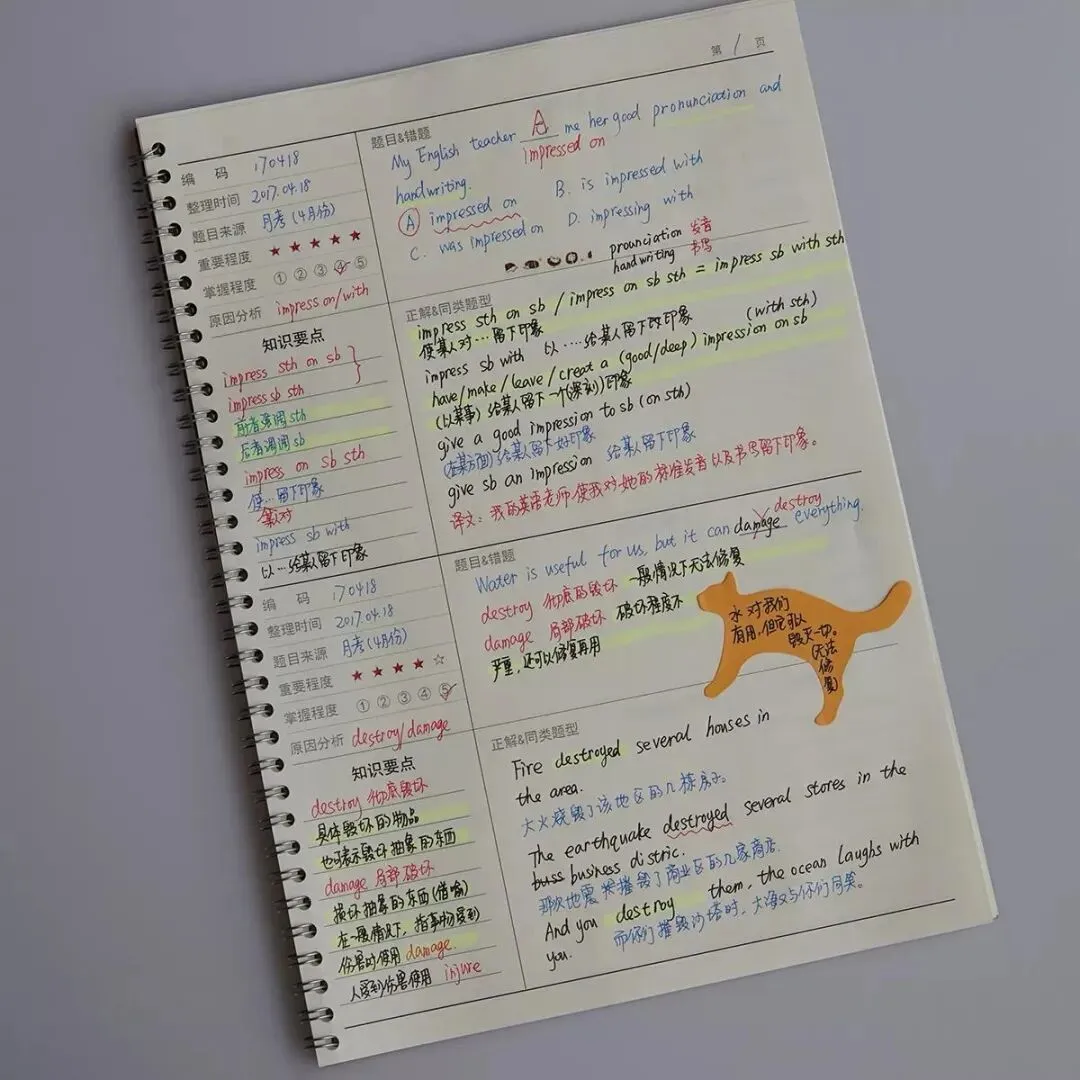 第 1 页
编 码 170418
整理时间 2017.04.18
题目来源 月考(4月份)
重要程度 ★★★★★
掌握程度 ①②③④⑤
原因分析 impress on/with
知识要点
impress sth on sb
impress sb sth
前者强调sth
后者强调sb
impress on sb sth
使…留下印象
某对
impress sb with
以…给某人留下印象
题目&错题
My English teacher A me her good pronunciation and
impressed on
handwriting.
A impressed on B. is impressed with
C. was impressed on D. impressing with
prounciation 发音
handwriting 书写
正解&同类题型
impress sth on sb / impress on sb sth = impress sb with sth
使某人对…留下印象
impress sb with 以…给某人留下印象 (with sth)
have/make/leave/creat a (good/deep) impression on sb
(以某事) 给某人留下一个(深刻)印象
give a good impression to sb (on sth)
(在某方面)给某人留下好印象
give sb an impression 给某人留下印象
译文: 我的英语老师使我对她的标准发音以及书写留下印象。
编 码 170418
整理时间 2017.04.18
题目来源 月考(4月份)
重要程度 ★★★★☆
掌握程度 ①②③④⑤
原因分析 destroy/damage
知识要点
destroy 彻底毁坏
具体毁坏的物品
也可表示毁坏抽象的东西
damage 局部破坏
损坏抽象的东西(借喻)
在一般情况下, 指事物受到
伤害时使用 damage.
人受到伤害使用 injure
题目&错题
destroy
Water is useful for us, but it can damage everything.
destroy 彻底的毁坏 一般情况下无法修复
damage 局部破坏 破坏程度不
严重, 还可以修复再用
水对我们
有用,但它可以
毁灭一切。
(无法
修
复)
正解&同类题型
Fire destroyed several houses in
the area.
大火烧毁了该地区的几栋房子。
The earthquake destroyed several stores in the
buss business distric.
那次地震摧毁了商业区的几家商店.
And you destroy them, the ocean laughs with
you. 而你们摧毁沙塔时, 大海又与你们同笑。